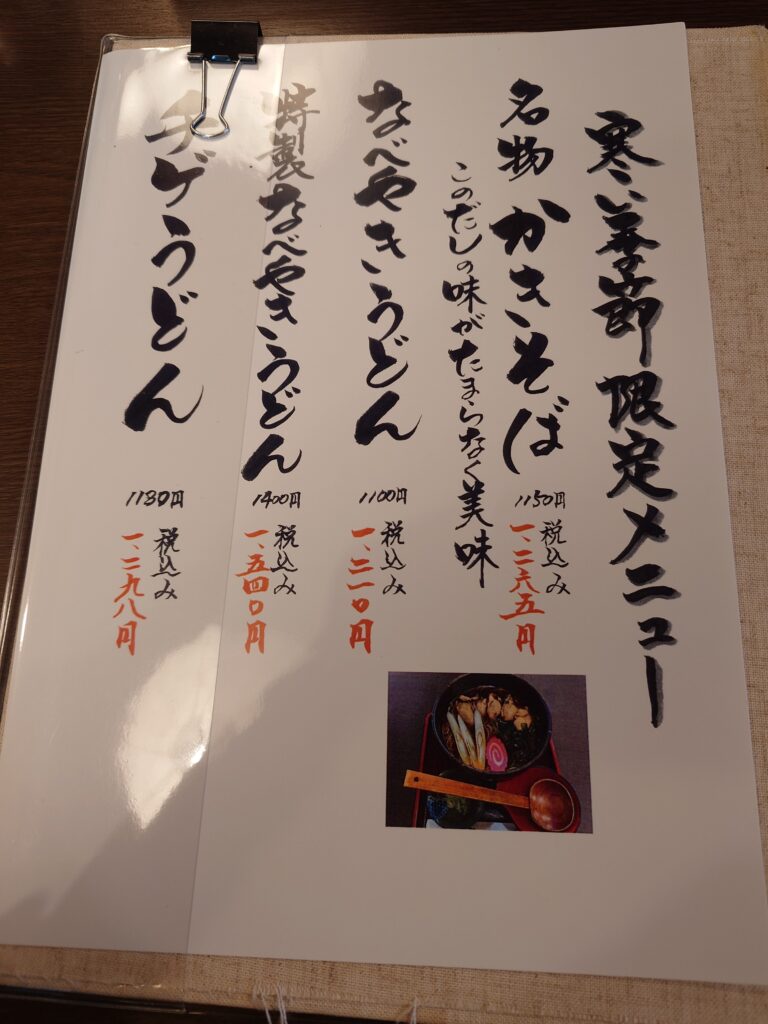 寒い季節限定メニュー
名物 かきそば
1150円 税込み
一、二六五円
このだしの味がたまらなく美味
なべやきうどん
1100円 税込み
一、二一〇円
特製なべやきうどん
1400円 税込み
一、五四〇円
チゲうどん
1180円 税込み
一、二九八円